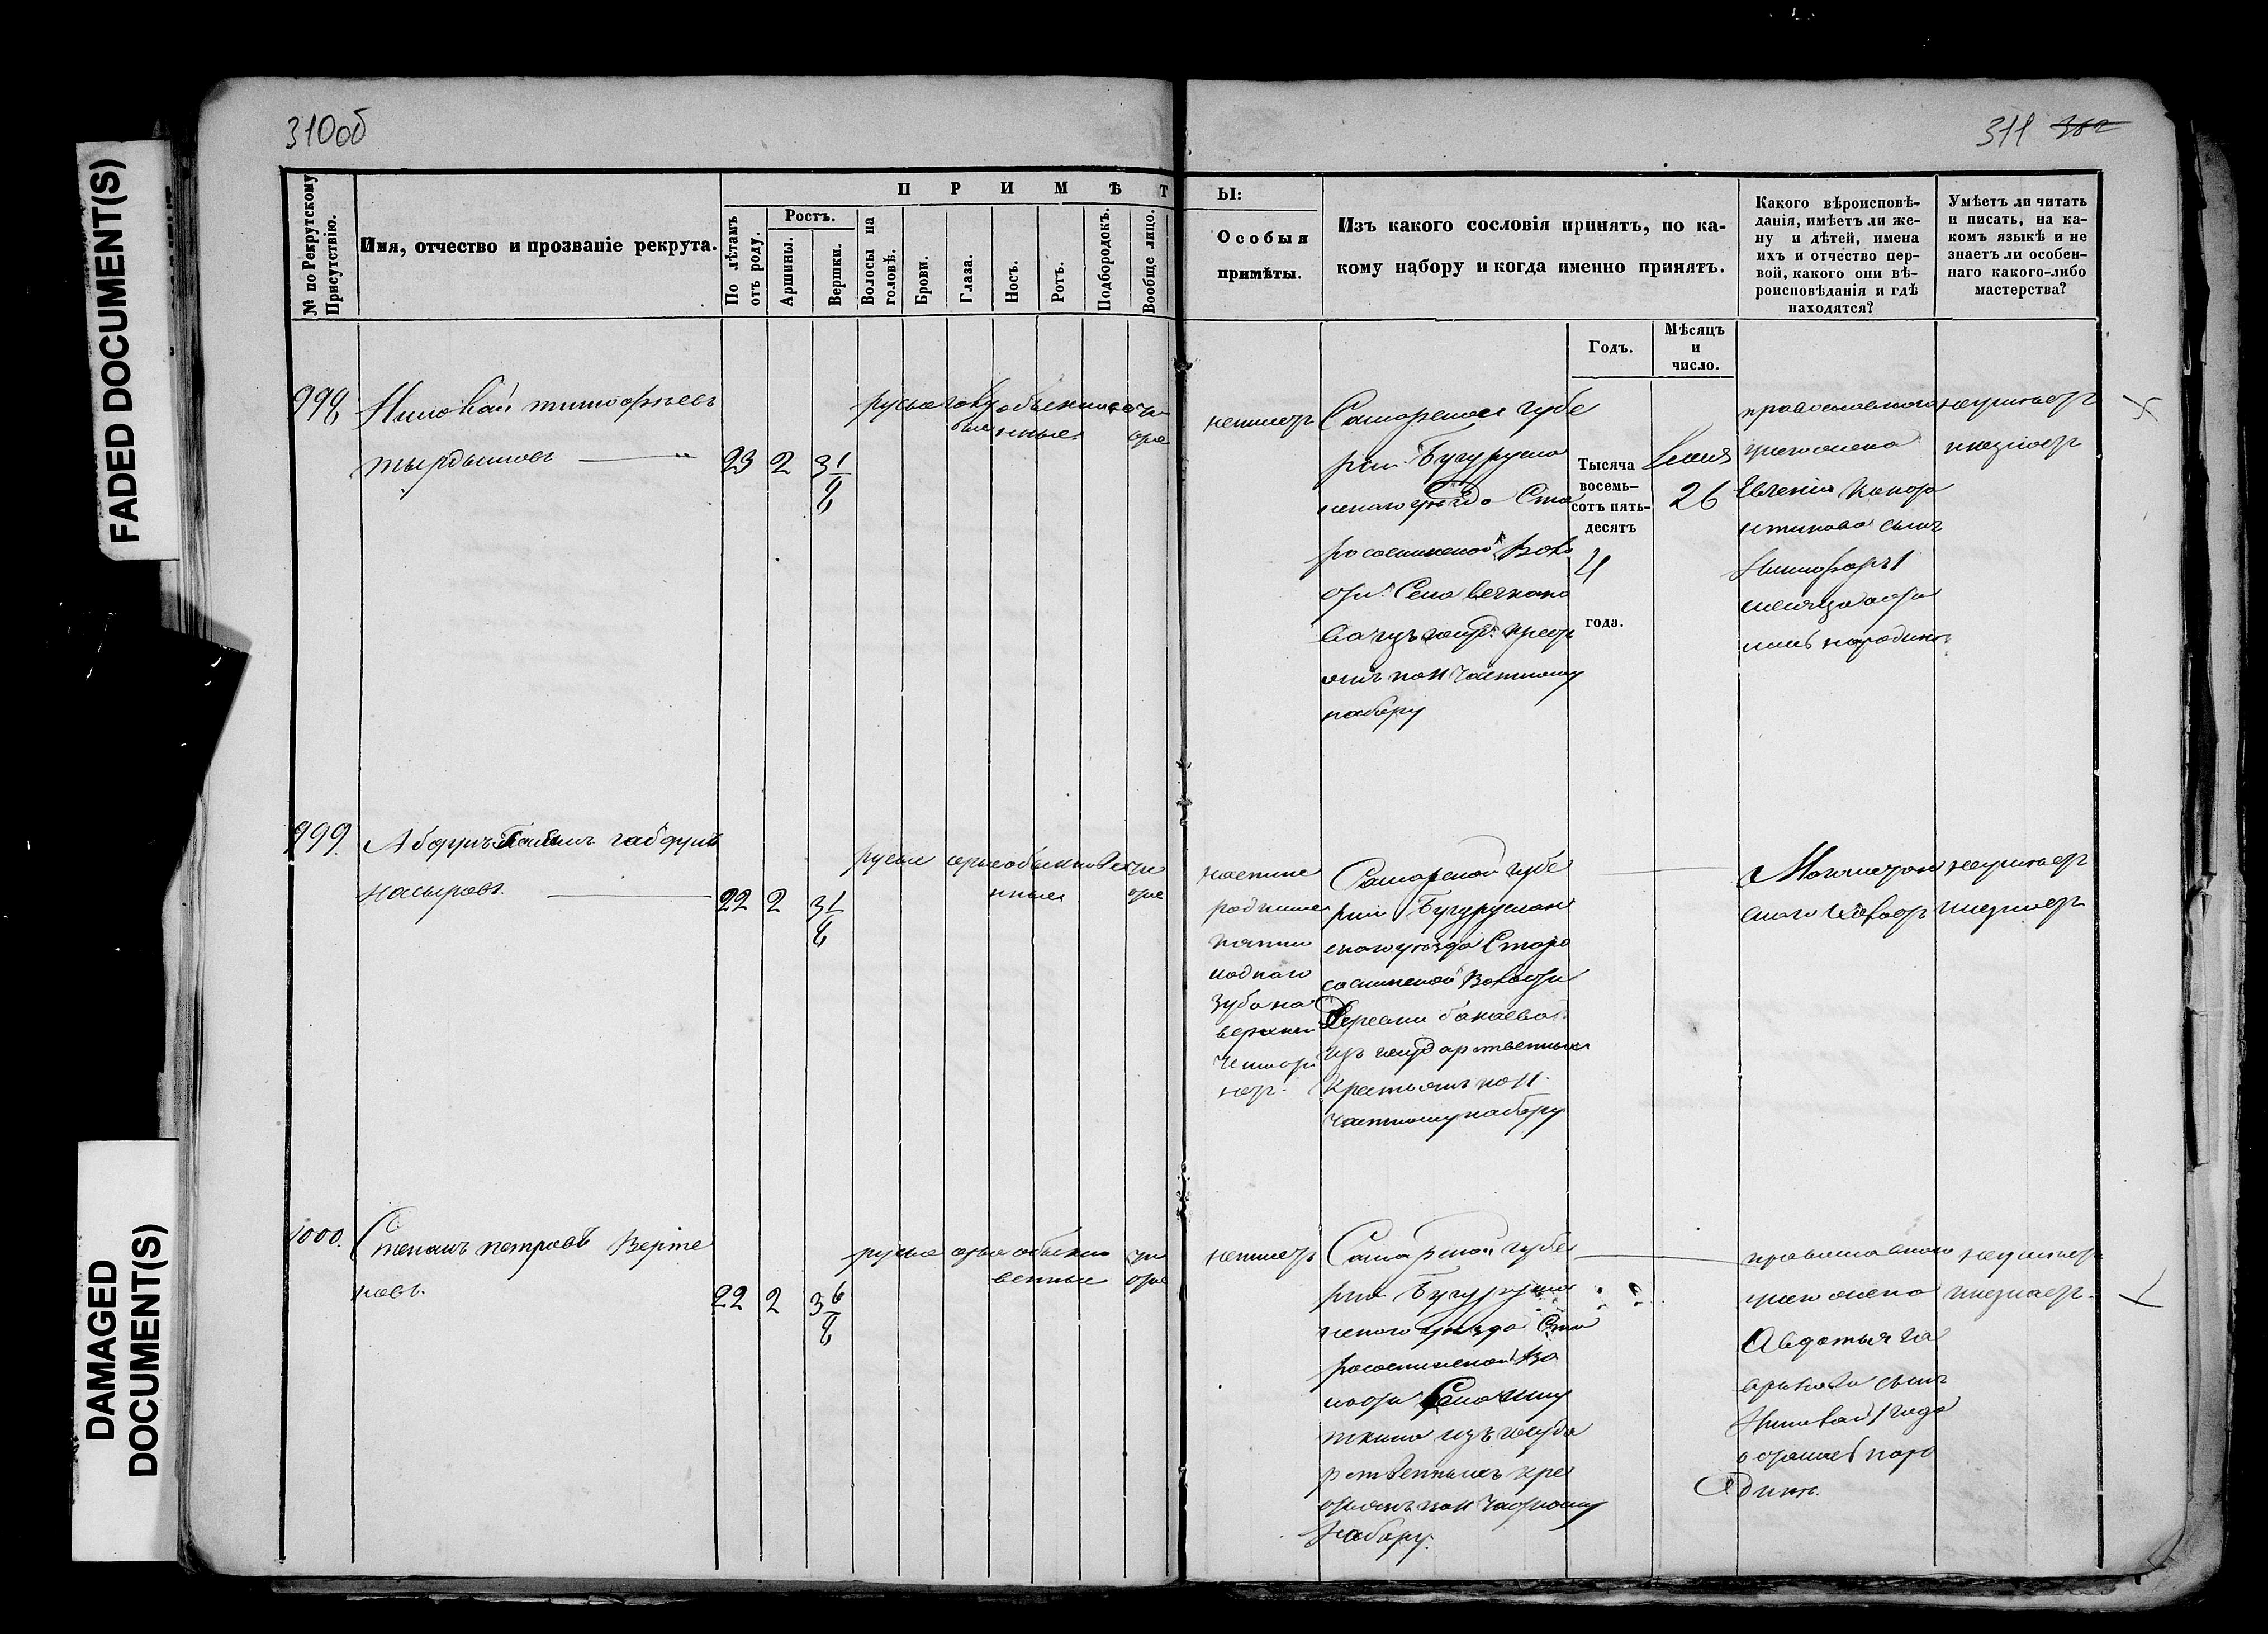 310об
311 312
FADED DOCUMENT(S)
DAMAGED
DOCUMENT(S)
№ по Рекрутскому
Присутствію.
Имя, отчество и прозваніе рекрута.
ПРИМѢТ
Ы:
По лѣтамъ
отъ роду.
Ростъ.
Аршины.
Вершки.
Волосы на
головѣ.
Брови.
Глаза.
Носъ.
Ротъ.
Подбородокъ.
Вообще лицо.
Особыя
примѣты.
Изъ какого сословія принятъ, по ка-
кому набору и когда именно принятъ.
Годъ.
Мѣсяцъ
и
число.
Какого вѣроисповѣ-
данія, имѣетъ ли же-
ну и дѣтей, имена
ихъ и отчество пер-
вой, какого они вѣ-
роисповѣданія и гдѣ
находятся?
Умѣетъ ли читать
и писать, на ка-
комъ языкѣ и не
знаетъ ли особен-
наго какого-либо
мастерства?
998
Николай тимофѣевъ
23 2 3 1/8
русые голу обыкнове чи
бые нные стое
неимеетъ
Самарской губе
рнии Бугурусла
нскаго уѣзда Ста
рососнинской Воло
сти Села
изъ госуд. крест
янъ по 11 частному
набору
Тысяча
восемь-
сотъ пять-
десятъ
4
года.
26
православнаго
жена
Евгения
сынъ
Никифоръ 1
месяца оста
лись народине
неумеетъ
незнаетъ
999.
насыровъ.
22 2 3 1/8
русые серые обыкновен чи
нные стое
на спине
родимые
пятны
одного
зуба на
верхней
челюсти
нетъ.
Самарской губе
рнии Бугуруслан
скаго уѣзда Старо
соснинской Волости
Деревни бакаева
изъ государственныхъ
крестьянъ по 11
частному набору
Магометан
скаго холостъ
неумеетъ
незнаетъ
1000.
Степанъ петровъ Верте
22 2 3 6/8
русые серые обыкно чи
венные стое
неимеетъ
Самарской губе
рнии Бугурусла
нскаго уѣзда Ста
рососнинской Во
лости Села
изъ госуда
рственныхъ кре
стьянъ по 11 частному
набору.
православнаго
жена
Авдотья га
врилова сынъ
Николай 1 года
остались наро
дине.
неумеетъ
незнаетъ.